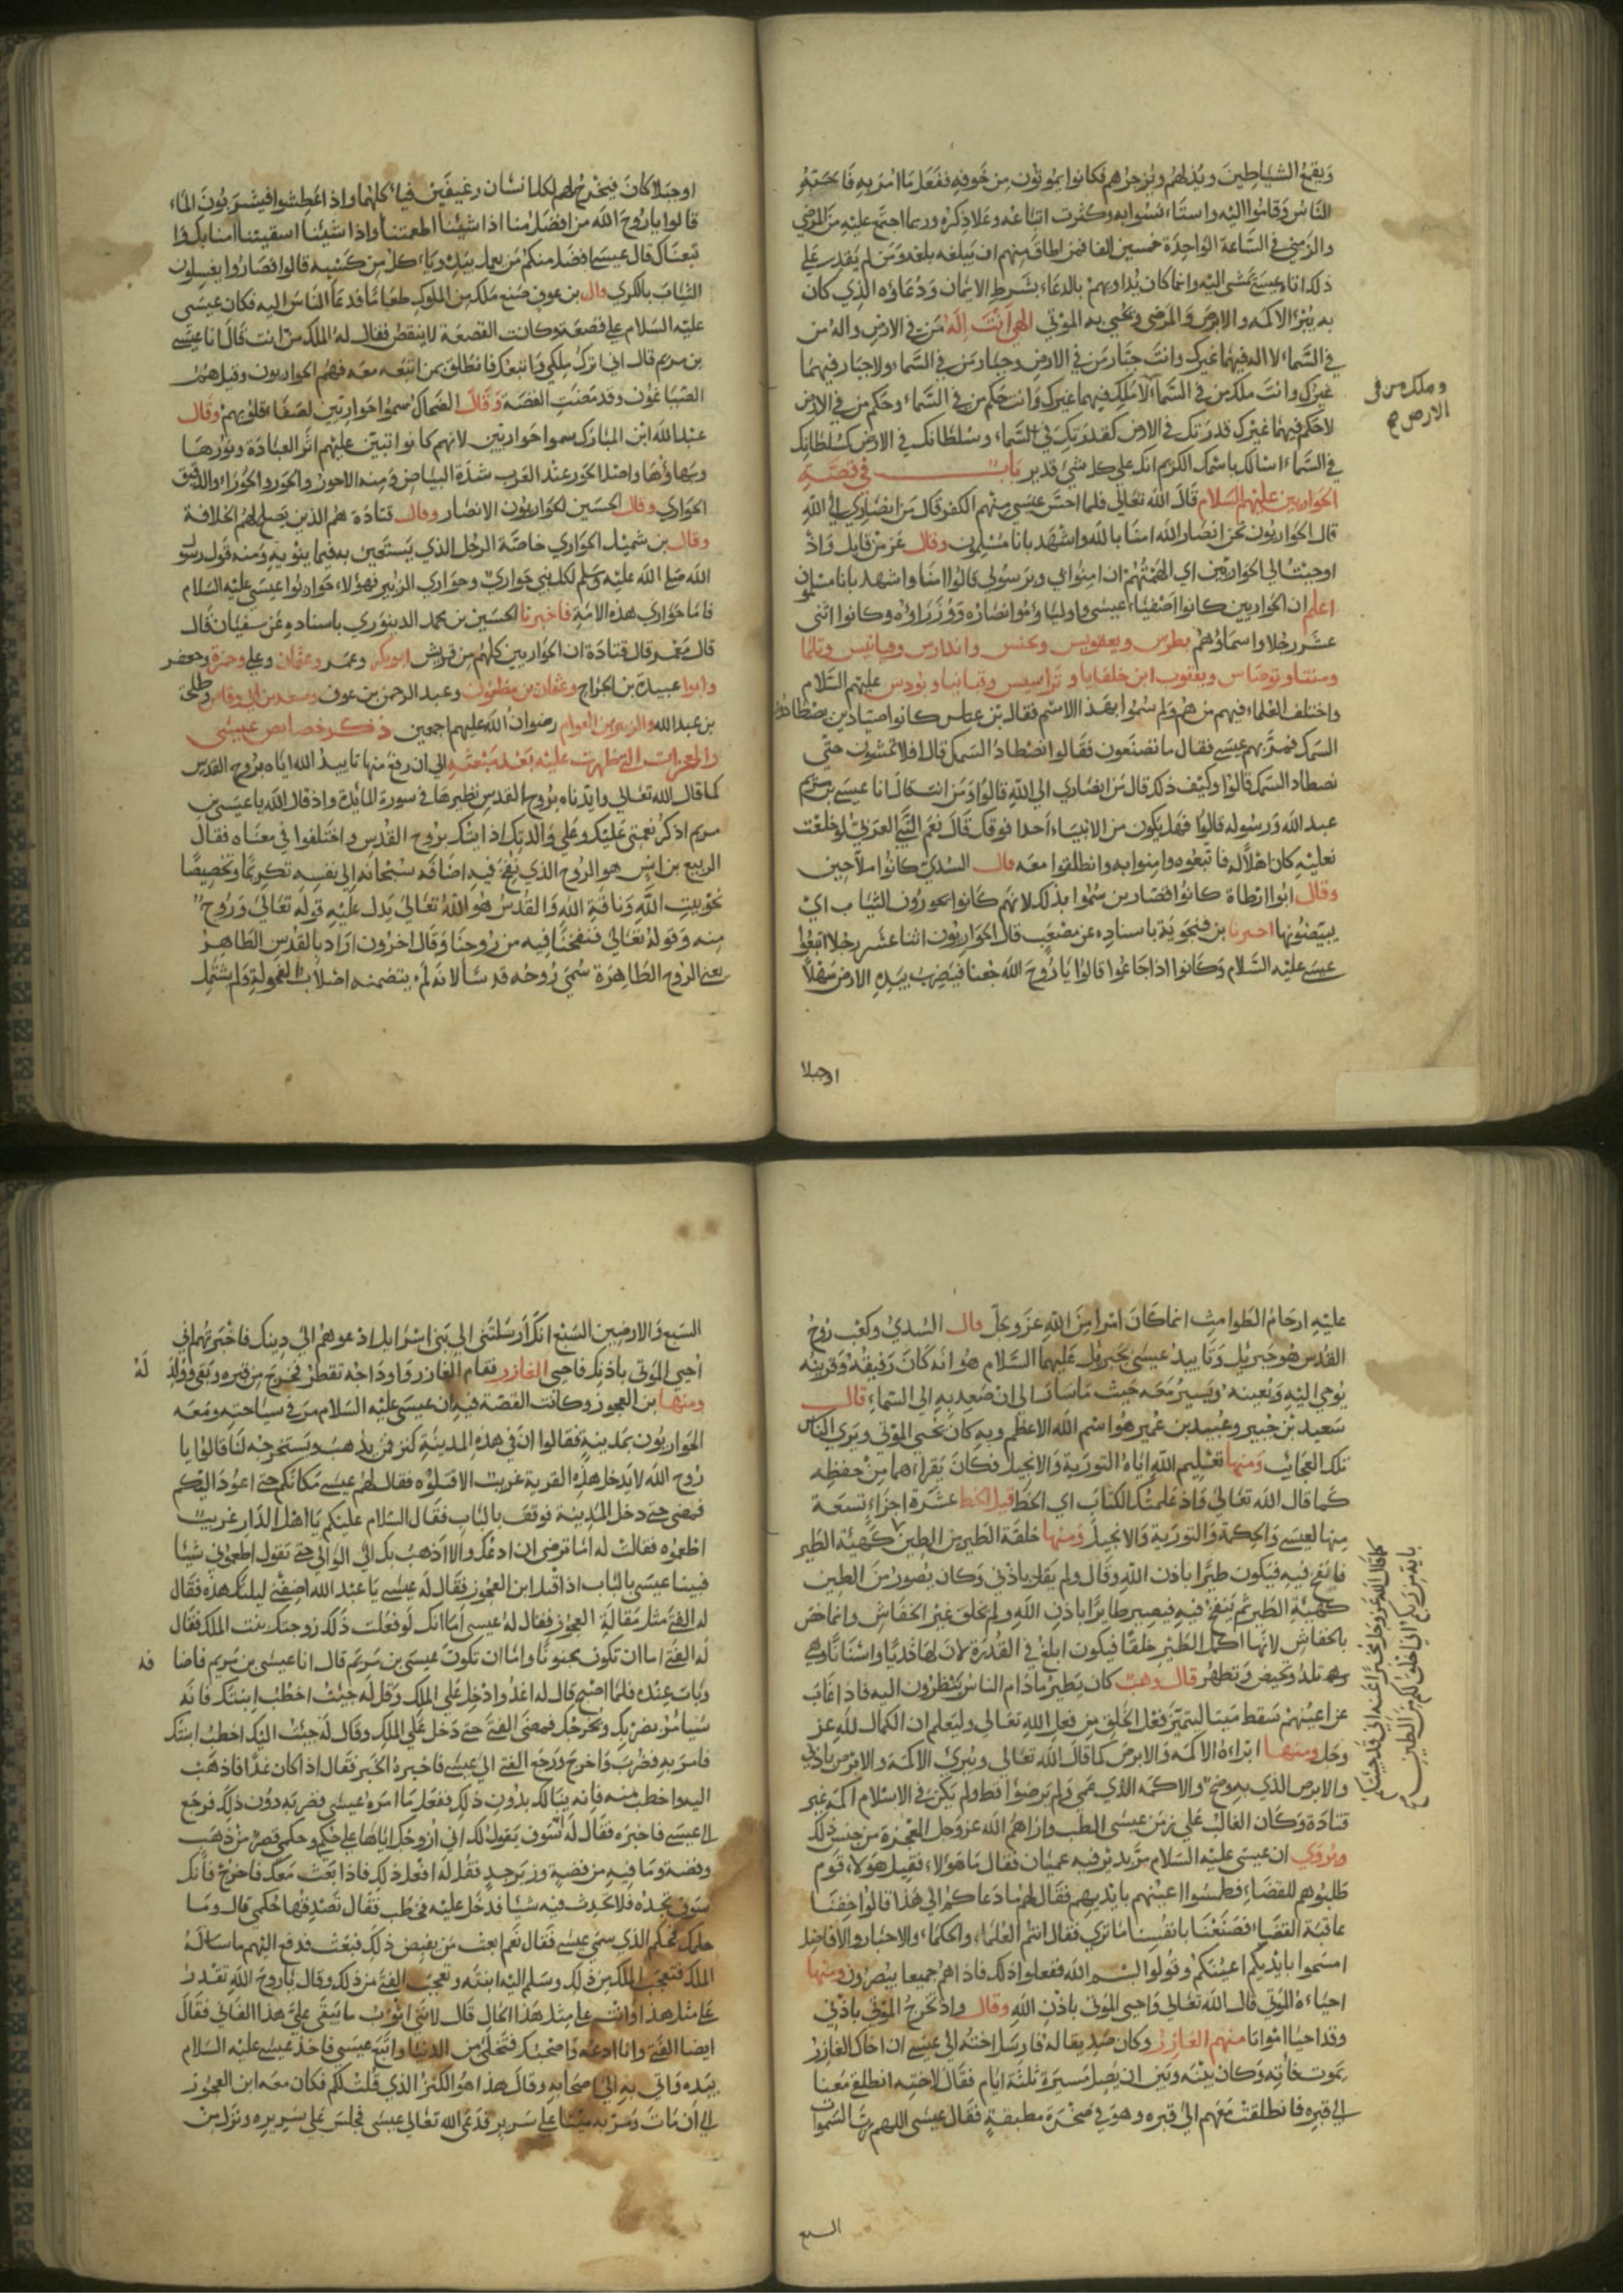 ويقمع الشياطين ويذلهم ويزجرهم فكانوا يموتون من خوفه ففعل ما امر به فاحبته
الناس وقاموا اليه واستانسوا به وكثرت اتباعه وعلا ذكره وربما اجتمع عليه من المرضى
والزمنى في الساعة الواحدة خمسين الفا فمن اطاق منهم ان يبلغه بلغه ومن لم يقدر على
ذلك اتاه عيسى يمشي اليه وانما كان يداويهم بالدعاء بشرط الايمان ودعاؤه الذي كان
به يبرئ الاكمه والابرص والمرضى ويحيي به الموتى الهي انت اله من في الارض واله من
في السماء لا اله فيهما غيرك وانت جبار من في الارض وجبار من في السماء ولا جبار فيهما
غيرك وانت ملك من في السماء لا ملك فيهما غيرك وانت حكم من في السماء وحكم من في الارض
وملك من في
الارض صح
لا حكم فيهما غيرك قدرتك في الارض كقدرتك في السماء وسلطانك في الارض كسلطانك
في السماء اسالك باسمك الكريم انك على كل شئ قدير باب في قصة
الحواريين عليهم السلام قال الله تعالى فلما احس عيسى منهم الكفر قال من انصاري الى الله
قال الحواريون نحن انصار الله امنا بالله واشهد بانا مسلمون وقال عز من قايل واذ
اوحيت الى الحواريين اي الهمتهم ان امنوا بي وبرسولي قالوا امنا واشهد باننا مسلمون
اعلم ان الحواريين كانوا اصفياء عيسى واولياؤه وانصاره ووزراؤه وكانوا اثنى
عشر رجلا واسماؤهم بطرس ويعقوبس ويحنس واندارس وفيلبس
ويعقوب ابن خلفايا ويودس عليهم السلام
واختلف العلماء فيهم من هم ولم سموا بهذا الاسم فقال بن عباس كانوا صيادين يصطادون
السمك فمر بهم عيسى فقال ما تصنعون فقالوا نصطاد السمك قال افلا تمشون حتى
نصطاد السمك قالوا وكيف ذلك قال من انصاري الى الله قالوا ومن انت قال انا عيسى بن مريم
عبد الله ورسوله قالوا فهل يكون من الانبياء احدا فوقك قال نعم النبي العربي
فاتبعوه وامنوا به وانطلقوا معه قال السدي كانوا ملاحين
وقال ابوا ارطاة كانوا قصارين سموا بذلك لانهم كانوا يحورون الثياب اي
يبيضونها اخبرنا بن فنجوية باسناده عن مصعب قال الحواريون اثنا عشر رجلا اتبعوا
عيسى عليه السلام وكانوا اذا جاعوا قالوا يا روح الله جعنا فيضرب بيده الارض سهلا
اوجبلا
اوجبلا كان فيخرج لهم لكل انسان رغيفين فيأكلهما واذا عطشوا فيشربون الماء
قالوا يا روح الله من افضل منا اذا شئنا اطعمتنا واذا شئنا اسقيتنا امنا بك و
تبعناك قال عيسى افضل منكم من يعمل بيده وياكل من كسبه قالوا فصاروا يغسلون
الثياب بالكري قال بن عون صنع ملك من الملوك طعاما فدعا الناس اليه فكان عيسى
عليه السلام على قصعة وكانت القصعة لا ينقص فقال له الملك من انت قال انا عيسى
بن مريم قال اني اترك ملكي واتبعك فانطلق بمن اتبعه معه فهم الحواريون وقيل هم
الصباغون وقد مضت القصة وقال الضحاك سموا حواريين لصفاء قلوبهم وقال
عبد الله ابن المبارك سموا حواريين لانهم كانوا تبين عليهم اثر العبادة ونورها
وبهاؤها واصل الحور عند العرب شدة البياض ومنه الاحور والحور والحوراء والدقيق
الحواري وقال الحسين الحواريون الانصار وقال قتادة هم الذين يصلح لهم الخلافة
وقال بن شميل الحواري خاصة الرجل الذي يستعين به فيما ينوبه ومنه قول رسول
الله صلى الله عليه وسلم لكل نبي حواري وحواري الزبير فهؤلاء حواريوا عيسى عليه السلام
فاما حواري هذه الامة فاخبرنا الحسين بن محمد الدينوري باسناده عن سفيان قال
قال معمر قال قتادة ان الحواريين كلهم من قريش ابو بكر وعمر وعثمان وعلي وحمزة وجعفر
وابوا عبيدة بن الجراح وعثمان بن مظعون وعبد الرحمن بن عوف وسعد بن ابي وقاص وطلحة
بن عبد الله والزبير بن العوام رضوان الله عليهم اجمعين ذكر خصايص عيسى
والمعجزات التي ظهرت عليه بعد مبعثه الى ان رفع منها تاييد الله اياه بروح القدس
كما قال الله تعالى وايدناه بروح القدس نظيرها في سورة المائدة واذ قال الله يا عيسى بن
مريم اذكر نعمتي عليك وعلى والدتك اذ ايدتك بروح القدس واختلفوا في معناه فقال
الربيع بن انس هو الروح الذي نفخ فيه اضافه سبحانه الى نفسه تكريما وتخصيصا
نحو بيت الله وناقة الله والقدس هو الله تعالى يدل عليه قوله تعالى وروح
منه وقوله تعالى فنفخنا فيه من روحنا وقال اخرون اراد بالقدس الطاهر
يعني الروح الطاهرة سمي روحه قدسا لانه لم يتضمنه اصلاب الفحولة ولم يشتمل
عليه ارحام الطوامث انما كان امرا من الله عز وجل قال السدي وكعب روح
القدس هو جبريل وتاييد عيسى بجبريل عليهما السلام هو انه كان رفيقه وقرينه
يوحي اليه ويعينه ويسير معه حيث ما سار الى ان صعد به الى السماء قال
سعيد بن جبير وعبيد بن عمير هو اسم الله الاعظم وبه كان يحيي الموتى ويري الناس
تلك العجائب ومنها تعليم الله اياه التورية والانجيل فكان يقراءهما من حفظه
كما قال الله تعالى واذ علمتك الكتاب اي الخط قيل الخط عشرة اجزاء تسعة
منها لعيسى والحكمة والتورية والانجيل ومنها خلقة الطير من الطين كهيئة الطير
فانفخ فيه فيكون طيرا باذن الله وقال ولم يقل باذني وكان يصور من الطين
كهيئة الطير ثم ينفخ فيه فيصير طايرا باذن الله ولم يخلق غير الخفاش وانما خص
بالخفاش لانها اكمل الطير خلقا فيكون ابلغ في القدرة لان لها ثديا واسنانا وهي
تلد وتحيض وتطهر قال وهب كان يطير مادام الناس ينظرون اليه فاذا غاب
عن اعينهم سقط ميتا ليتميز فعل الخلق من فعل الله تعالى وليعلم ان الكمال لله عز
وجل ومنها ابراءه الاكمه والابرص كما قال الله تعالى وتبرئ الاكمه والابرص باذني
والابرص الذي به وضح والاكمه الذي عمي ولم ير ضوءا قط ولم يكن في الاسلام اكمه غير
قتادة وكان الغالب على زمن عيسى الطب واراهم الله عز وجل المعجزة من جنس ذلك
ويروى ان عيسى عليه السلام مر بدير فيه عميان فقال ما هؤلاء فقيل هؤلاء قوم
طلبوهم للقضاء فطمسوا اعينهم بايديهم فقال لهم ما دعاكم الى هذا قالوا خفنا
عاقبة القضاء فصنعنا بانفسنا ما ترى فقال انتم العلماء والحكماء والاحبار والافاضل
امسحوا بايديكم اعينكم وقولوا بسم الله ففعلوا ذلك فاذا هم جميعا يبصرون ومنها
احياءه الموتى قال الله تعالى واحيي الموتى باذن الله وقال واذ تخرج الموتى باذني
وقد احيا امواتا منهم العازر وكان صديقا له فارسل اخته الى عيسى ان اخاك العازر
يموت فاته وكان بينه وبين ان يصل مسيرة ثلثة ايام فقال لاخته انطلقي معنا
الى قبره فانطلقت معهم الى قبره وهو في صخرة مطبقة فقال عيسى اللهم رب السموات
السبع
كما قال الله عز وجل مخبرا عنه اني قد جئتكم
باية من ربكم اني اخلق لكم من الطين صح
السبع والارضين السبع انك ارسلتني الى بني اسرائيل ادعوهم الى دينك فاخبرتهم اني
احيي الموتى باذنك فاحيي العازر فقام العازر واوداجه تقطر فخرج من قبره وبقي وولد له
ومنها بن العجوز وكانت القصة فيه ان عيسى عليه السلام مر في سياحته ومعه
الحواريون بمدينة فقالوا ان في هذه المدينة كنز فمن يذهب ويستخرجه لنا قالوا يا
روح الله لا يدخل هذه القرية غريب الا قتلوه فقال لهم عيسى مكانكم حتى اعود اليكم
فمضى حتى دخل المدينة فوقف بالباب فقال السلام عليكم يا اهل الدار غريب
اطعموه فقالت له اما ترضى ان ادعك والا اذهب بك الى الوالي حتى تقول اطعموني شيئا
فبينا عيسى بالباب اذ اقبل ابن العجوز فقال له عيسى يا عبد الله اضفني ليلتك هذه فقال
له الفتى مثل مقالة العجوز فقال له عيسى اما انك لو فعلت ذلك زوجتك بنت الملك فقال
له الفتى اما ان تكون مجنونا واما ان تكون عيسى بن مريم قال انا عيسى بن مريم فاضافه
وبات عنده فلما اصبح قال له اغد وادخل على الملك وقل له جيئت اخطب ابنتك فانه
سيامر بضربك ويخرجك فمضى الفتى حتى دخل على الملك وقال له جيئت اليك اخطب ابنتك
فامر به فضرب واخرج ورجع الفتى الى عيسى فاخبره الخبر فقال اذا كان غدا فاذهب
اليه واخطب منه فانه ينالك بدون ذلك ففعل ما امره عيسى فضربه دون ذلك فرجع
الى عيسى فاخبره فقال له ائته سوف يقول لك اني ازوجك اياها على حكمي وحكمي قصر من ذهب
وفضة وما فيه من فضة وزبرجد فقل له افعل ذلك فاذا بعث معك فاخرج فانك
سوف تجده فلا تحدث فيه شيئا فدخل عليه فخطب فقال تصدقها حكمي قال وما
حكمك فحكم الذي سمي عيسى فقال نعم ابعث من يقبض ذلك فبعث فدفع اليهم ما ساله
الملك فتعجب الملك من ذلك وسلم اليه ابنته وتعجب الفتى من ذلك وقال يا روح الله تقدر
على مثل هذا وانت على مثل هذا الحال قال لاني اثرت ما يبقى على هذا الفاني فقال
ايضا الفتى وانا ادعه واصحبك فتخلى من الدنيا واتبع عيسى فاخذ عيسى عليه السلام
بيده واتى به الى اصحابه وقال هذا هو الكنز الذي قلت لكم فكان معه ابن العجوز
الى ان مات ومر به ميتا على سرير فدعى الله تعالى عيسى فجلس على سريره ونزل من